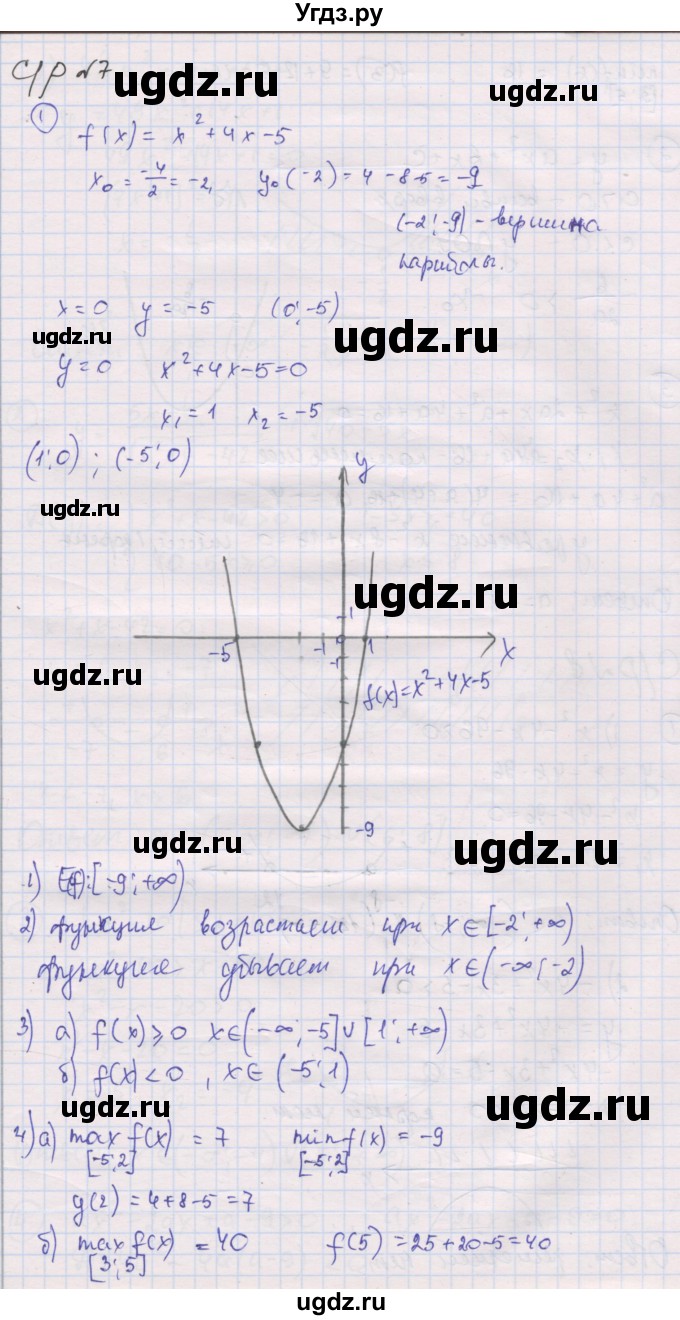 Угдз.ру
С/р №7
ugdz.ru
1
f(x) = x² + 4x - 5
x₀ = -4/2 = -2, y₀(-2) = 4 - 8 - 5 = -9
(-2; -9) - вершина
параболы.
x = 0 y = -5 (0; -5)
ugdz.ru ugdz.ru
y = 0 x² + 4x - 5 = 0
x₁ = 1 x₂ = -5
(1; 0) ; (-5; 0)
y
ugdz.ru
ugdz.ru
1
-5 -1 0 1 x
-1
ugdz.ru
f(x) = x² + 4x - 5
-9
ugdz.ru ugdz.ru
1) E(f): [-9; +∞)
2) функция возрастает при x ∈ [-2; +∞)
функция убывает при x ∈ (-∞; -2)
3) а) f(x) ⩾ 0 x ∈ (-∞; -5] ∪ [1; +∞)
б) f(x) < 0, x ∈ (-5; 1)
ugdz.ru ugdz.ru
4) а) max f(x) = 7 min f(x) = -9
[-5; 2] [-5; 2]
y(2) = 4 + 8 - 5 = 7
ugdz.ru ugdz.ru
б) max f(x) = 40 f(5) = 25 + 20 - 5 = 40
[3; 5]
ugdz.ru